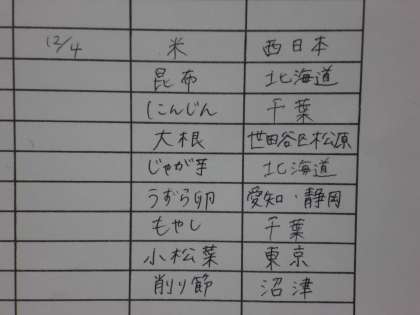 12/4 米 西日本
昆布 北海道
にんじん 千葉
大根 世田谷区松原
じゃが芋 北海道
うずら卵 愛知・静岡
もやし 千葉
小松葉 東京
削り節 沼津